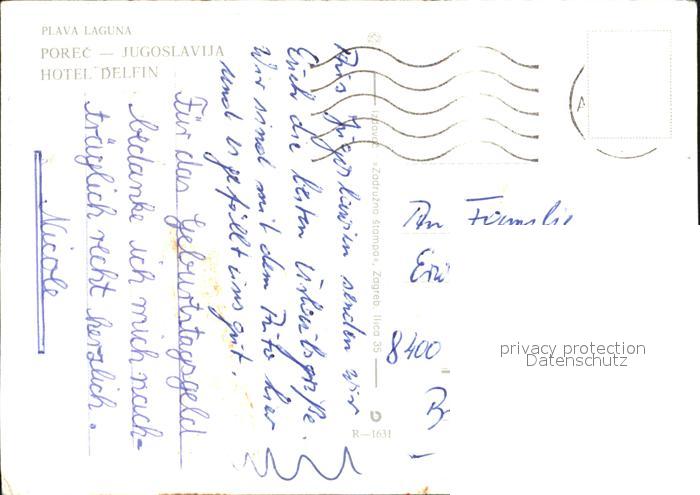 PLAVA LAGUNA
POREČ — JUGOSLAVIJA
HOTEL DELFIN
Aus Jugoslawien senden wir
Euch die besten Urlaubsgrüße.
Wir sind mit dem Auto hier
und es gefällt uns gut.
Für das Geburtstagsgeld
bedanke ich mich nach-
träglich recht herzlich.
Nicole
Izdavač: »Zadružna štampa«, Zagreb Ilica 35
R-1631
An Familie
8400
privacy protection
Datenschutz